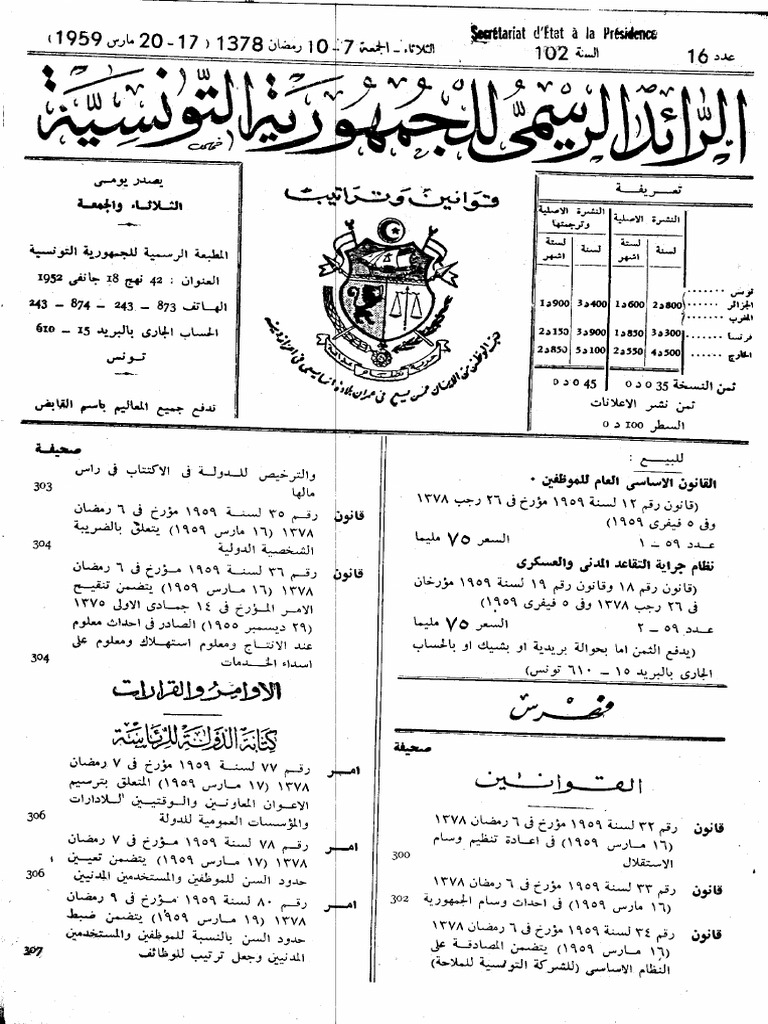 Secrétariat d'Etat à la Présidence
عدد 16
السنة 102
الثلاثاء - الجمعة 7-10 رمضان 1378 (17-20 مارس 1959)
الرائد الرسمي للجمهورية التونسية
قوانين وتراتيب
تعريفة
النشرة الاصلية
النشرة الاصلية وترجمتها
لسنة
لستة اشهر
لسنة
لستة اشهر
تونس
الجزائر
المغرب
2د800
1د600
3د400
1د900
فرنسا
3د300
1د850
3د900
2د150
الخارج
4د500
2د550
5د100
2د850
ثمن النسخة 0د035
0د045
ثمن نشر الاعلانات
السطر 0د100
حرية نظام عدالة
حب الوطن من الايمان
يصدر يومى
الثلاثاء والجمعة
المطبعة الرسمية للجمهورية التونسية
العنوان : 42 نهج 18 جانفى 1952
الهاتف 873 - 243 - 874 - 243
الحساب الجارى بالبريد 15 - 610
تونس
تدفع جميع المعاليم باسم القابض
للبيع :
القانون الاساسى العام للموظفين .
(قانون رقم ١٢ لسنة ١٩٥٩ مؤرخ فى ٢٦ رجب ١٣٧٨
وفى ٥ فيفرى ١٩٥٩)
عدد ٥٩ - ١ السعر ٧٥ مليما
نظام جراية التقاعد المدنى والعسكرى
(قانون رقم ١٨ وقانون رقم ١٩ لسنة ١٩٥٩ مؤرخان
فى ٢٦ رجب ١٣٧٨ وفى ٥ فيفرى ١٩٥٩)
عدد ٥٩ - ٢ السعر ٧٥ مليما
(يدفع الثمن اما بحوالة بريدية او بشيك او بالحساب
الجارى بالبريد ١٥ - ٦١٠ تونس)
فهرس
صحيفة
القوانين
قانون رقم ٣٢ لسنة ١٩٥٩ مؤرخ فى ٦ رمضان ١٣٧٨
(١٦ مارس ١٩٥٩) فى اعادة تنظيم وسام
الاستقلال 300
قانون رقم ٣٣ لسنة ١٩٥٩ مؤرخ فى ٦ رمضان ١٣٧٨
(١٦ مارس ١٩٥٩) فى احداث وسام الجمهورية 302
قانون رقم ٣٤ لسنة ١٩٥٩ مؤرخ فى ٦ رمضان ١٣٧٨
(١٦ مارس ١٩٥٩) يتضمن المصادقة على
النظام الاساسى (للشركة التونسية للملاحة)
صحيفة
والترخيص للدولة فى الاكتتاب فى راس
مالها 303
قانون رقم ٣٥ لسنة ١٩٥٩ مؤرخ فى ٦ رمضان
١٣٧٨ (١٦ مارس ١٩٥٩) يتعلق بالضريبة
الشخصية الدولية 304
قانون رقم ٣٦ لسنة ١٩٥٩ مؤرخ فى ٦ رمضان
١٣٧٨ (١٦ مارس ١٩٥٩) يتضمن تنقيح
الامر المؤرخ فى ١٤ جمادى الاولى ١٣٧٥
(٢٩ ديسمبر ١٩٥٥) الصادر فى احداث معلوم
عند الانتاج ومعلوم استهلاك ومعلوم على
اسداء الخدمات 304
الاوامر والقرارات
كتابة الدولة للرئاسة
امر رقم ٧٧ لسنة ١٩٥٩ مؤرخ فى ٧ رمضان
١٣٧٨ (١٧ مارس ١٩٥٩) المتعلق بترسيم
الاعوان المعاونين والوقتيين للادارات
والمؤسسات العمومية للدولة 306
امر رقم ٧٨ لسنة ١٩٥٩ مؤرخ فى ٧ رمضان
١٣٧٨ (١٧ مارس ١٩٥٩) يتضمن تعيين
حدود السن للموظفين والمستخدمين المدنيين 306
امر رقم ٨٠ لسنة ١٩٥٩ مؤرخ فى ٩ رمضان
١٣٧٨ (١٩ مارس ١٩٥٩) يتضمن ضبط
حدود السن بالنسبة للموظفين والمستخدمين
المدنيين وجعل ترتيب للوظائف 307